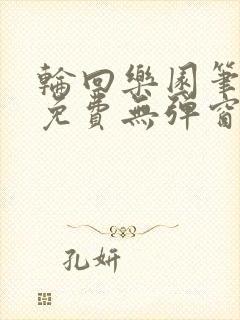 輪回樂園筆
免費無彈窗
孔妍